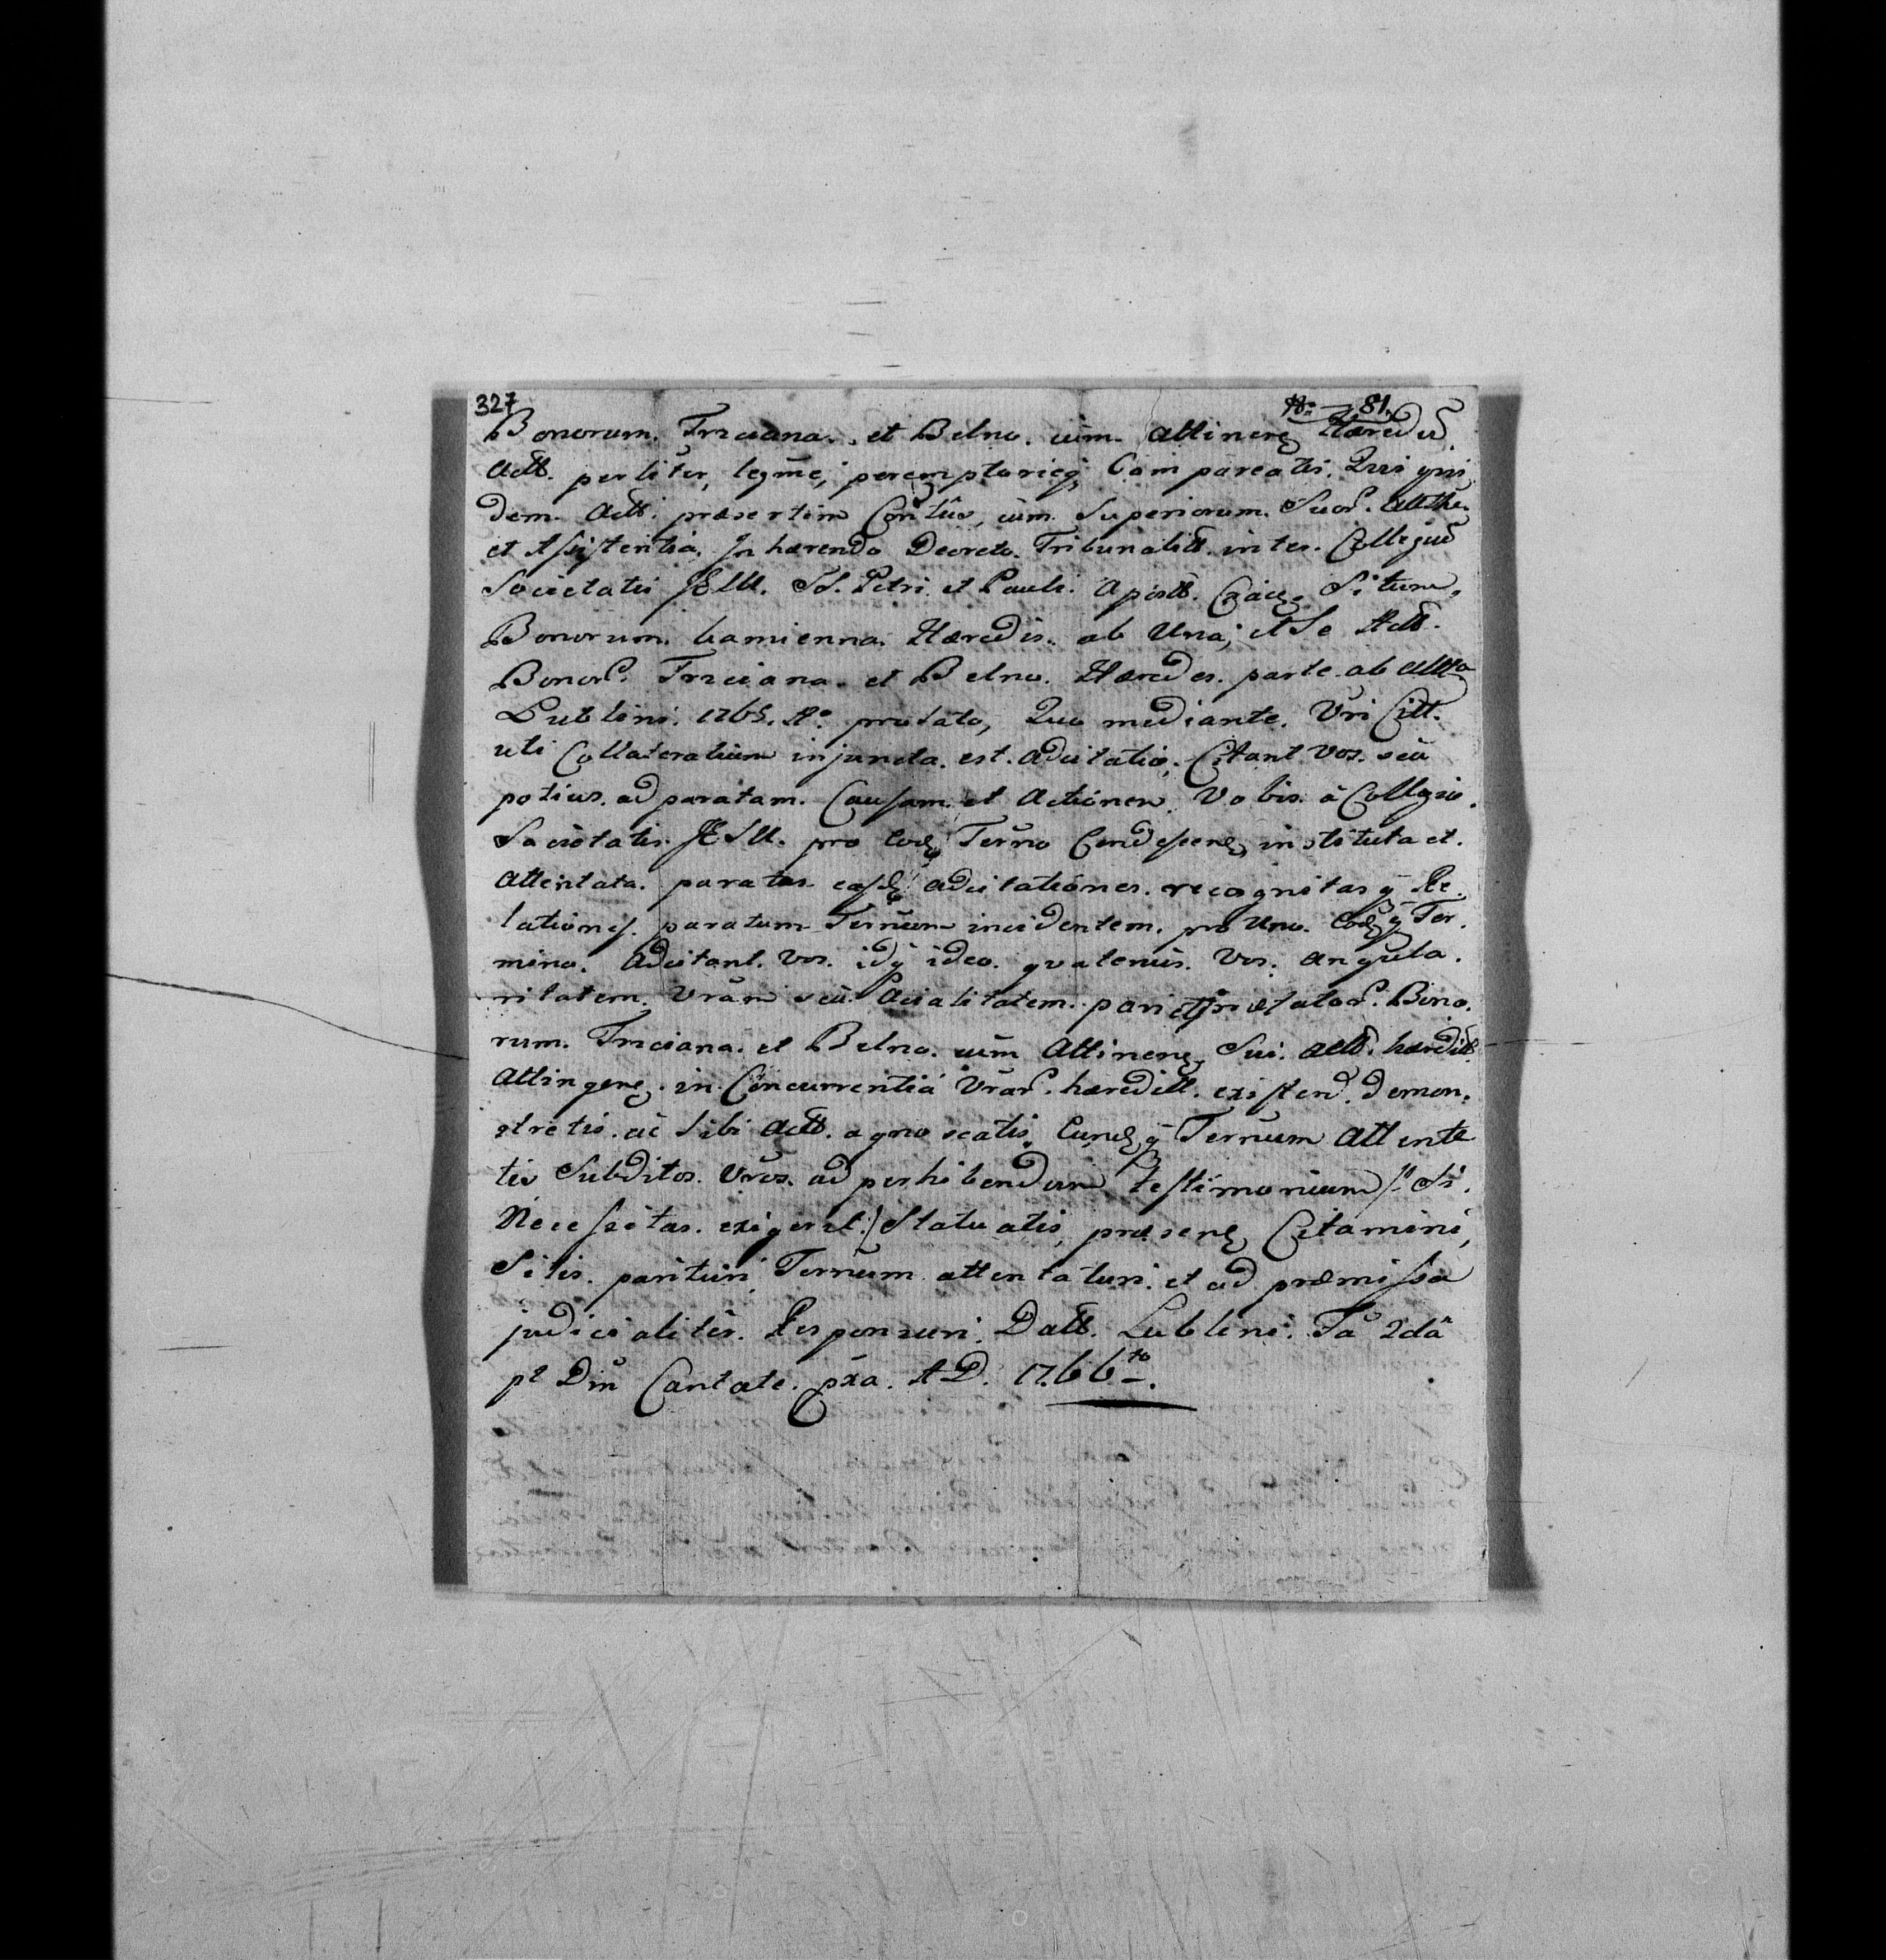 327 No 81.
Bonorum. Trzciana. et Belno. cum. Attinen. Hæredū
Actt. perliter, legmé, perempto­rieq; Compareatis. Qui qui
dem. Actt. præsertim Contus, cum. Superiorum. Suor. Autthe.
et Assistentia. Inhærendo Decreto. Tribunalitt. inter. Collegiū
Societatis JESU. SS. Petri. et Pauli. Apostt. Crac. Situm.
Bonorum. Kamienna. Hæredis. ab Una; et Se Actt.
Bonor. Trzciana. et Belno. Hæredes. parte ab altta
Lublini. 1765. Ao prolato, Quo mediante. Vri Citt.
uti Collateralium injuncta. est. Adcitatio. Citant Vos. seu
potius. ad paratam. Causam. et Actionem Vobis. à Collegio.
Societatis. JESU. pro Eod. Terno Condescen. instituta et.
Attentata. paratas easd. adcitationes. recognitasq; Re.
lationes. paratum Ternum incidentem. pro Uno. Eodq; Ter.
mino. Adcitant. Vos. idq; ideo. quatenus. Vos. angula.
ritatem. Vram seu. Acialitatem. parietator. Bono.
rum. Trzciana. et Belno. cum Attinen. Sui. Actt. hæreditt
Attingen. in Concurrentia Vrar. hæreditt. existen. demon.
stretis. ac Sibi Actt. agnoscatis. Eundq; Ternum Attente
tis Subditos. Vros. ad perhibendum testimonium /: Si.
Necessitas. exigeret :/ Statuatis, præsen. Citamini,
Sitis. parituri Ternum attentaturi. et ad præmissa
judicialiter. Responsuri. Datt. Lublini. Fa 2dâ
pt Dm Cantate. pxa. A D. 1766to.